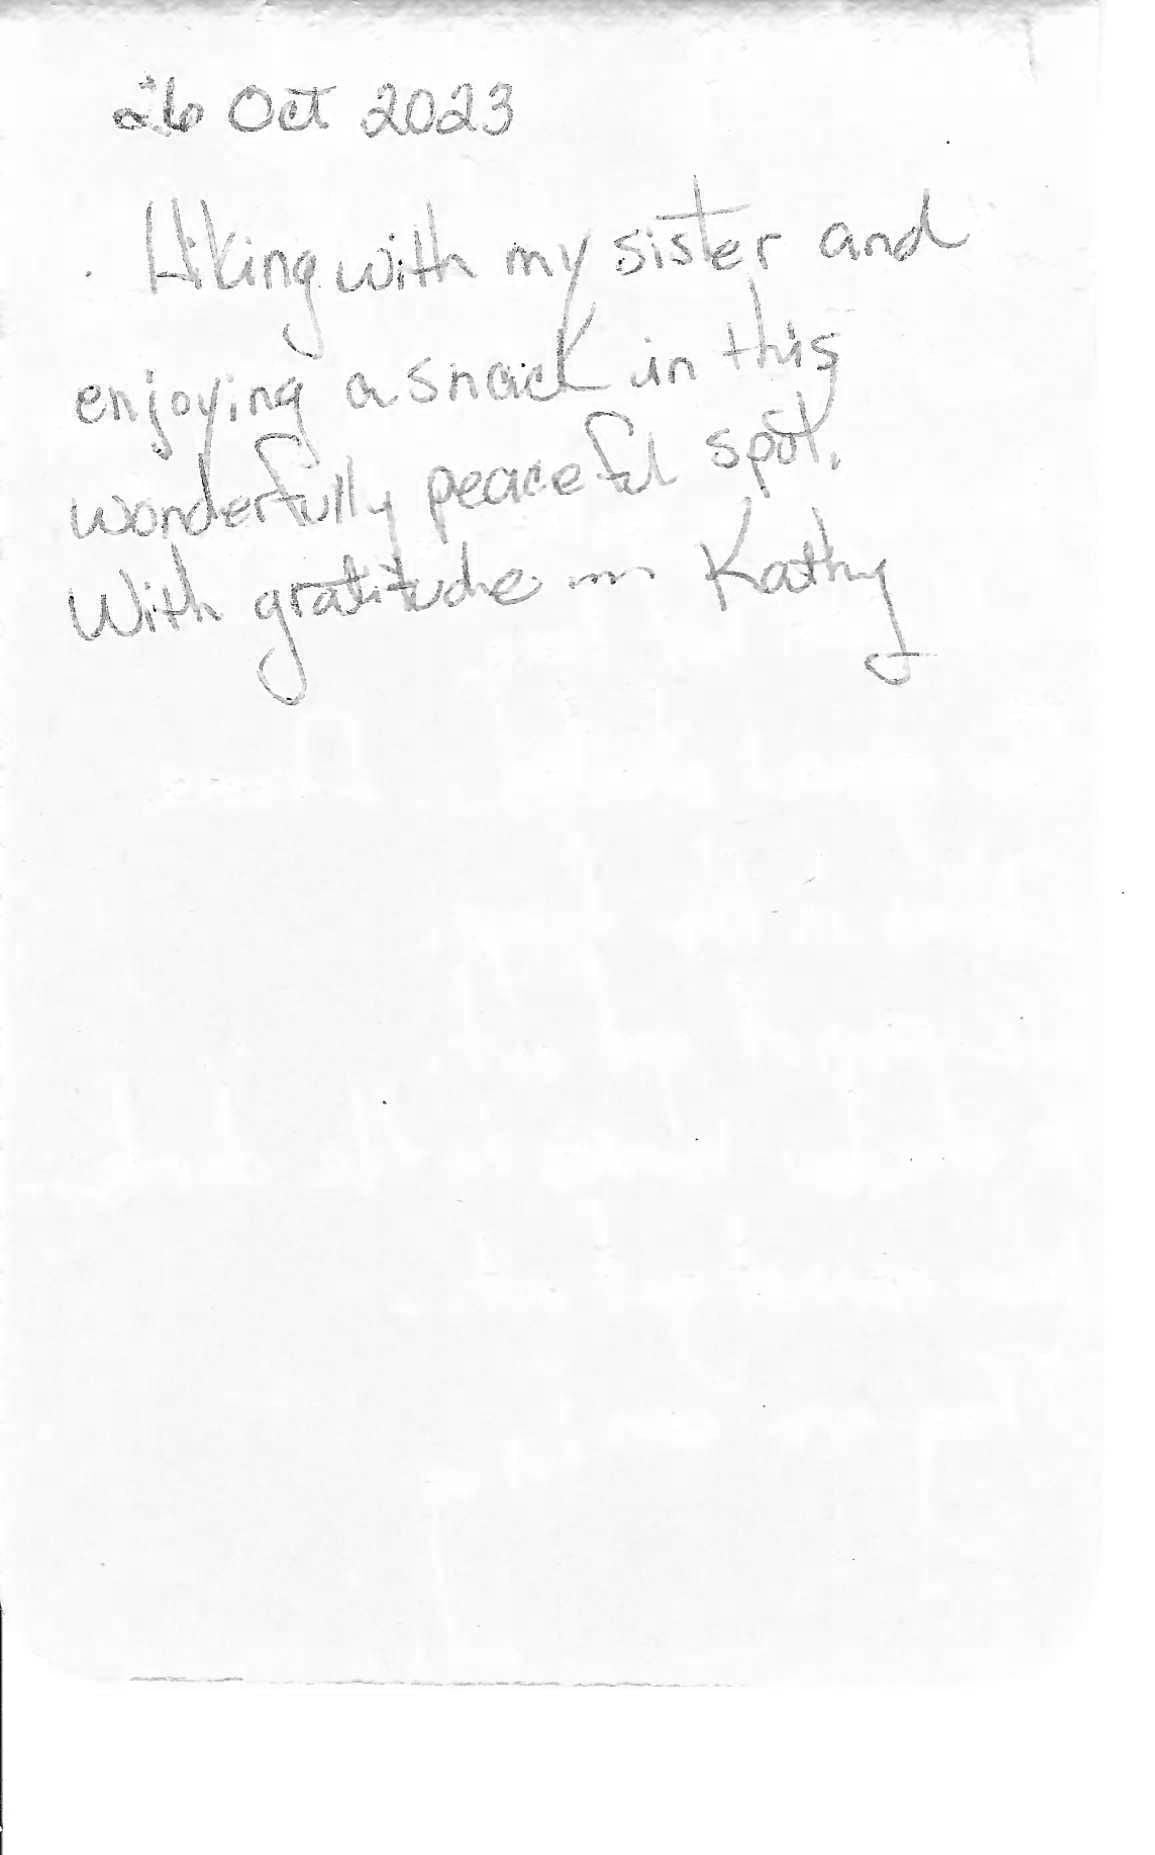 26 Oct 2023
Hiking with my sister and
enjoying a snack in this
wonderfully peaceful spot.
With gratitude ~ Kathy